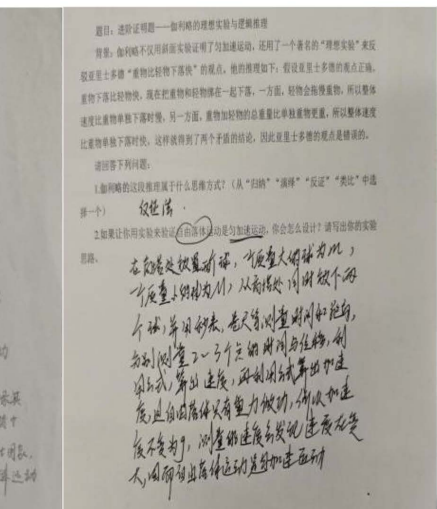 动
求真
题目：进阶证明题——伽利略的理想实验与逻辑推理
背景：伽利略不仅用斜面实验证明了匀加速运动，还用了一个著名的“理想实验”来反
驳亚里士多德“重物比轻物下落快”的观点，他的推理如下：假设亚里士多德的观点正确，
重物下落比轻物快，现在把重物和轻物绑在一起下落，一方面，轻物会拖慢重物，所以整体
速度比重物单独下落时慢，另一方面，重物加轻物的总重量比单独重物更重，所以整体速度
比重物单独下落时快，这样就得到了两个矛盾的结论，因此亚里士多德的观点是错误的。
请回答下列问题：
1.伽利略的这段推理属于什么思维方式？（从“归纳”“演绎”“反证”“类比”中选
择一个） 反证法．
2.如果让你用实验来验证自由落体运动是匀加速运动，你会怎么设计？请写出你的实验
思路。
在高塔处放置两球，一个质量大的球为M，
一个质量小的球为M，从高塔处同时放下两
个球，并用秒表，卷尺等测量时间和距离，
分别测量2~3个点的时间与位移，利
用公式，算出速度，再利用公式算出加速
度，且自由落体只有重力做功，所以加速
度不变为g，测量的速度会发现速度在变
大，因而自由落体运动是匀加速运动